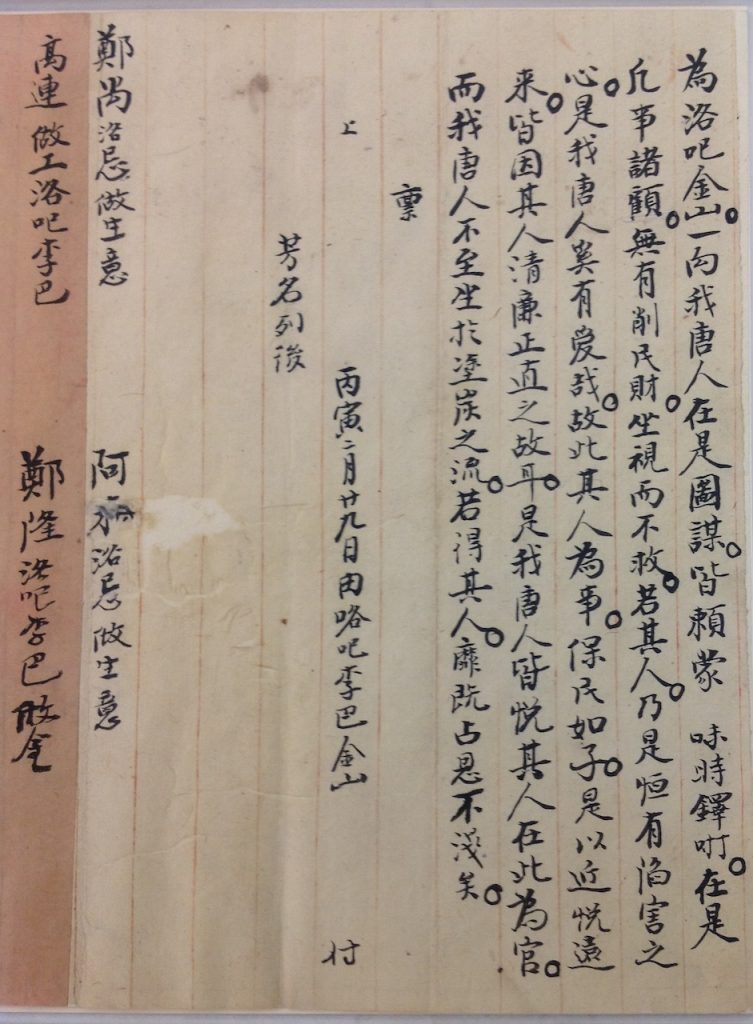 為洛吧金山。一向我唐人在是圖謀。皆賴蒙 味時鐸咐。在是
凡事諸顧。無有削民財。坐視而不救。若其人。乃是恒有陷害之
心。是我唐人奚有爱哉。故此其人為事。保民如子。是以近悦遠
来。皆因其人清廉正直之故耳。是我唐人皆悦其人在此為官。
而我唐人不至坐於塗炭之流。若得其人。靡既占恩不淺矣。
禀
上
丙寅二月廿九日由咯吧李巴金山 付
芳名列後
鄭尚洛忌做生意 阿 洛忌做生意
高連 做工洛吧李巴 鄭隆洛吧李巴 金